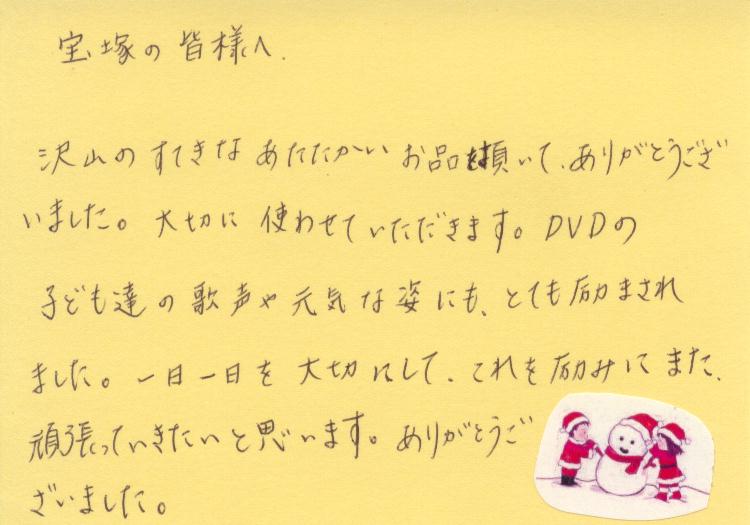 宝塚の皆様へ.
沢山のすてきなあたたかいお品を頂いて、ありがとうござ
いました。大切に使わせていただきます。DVDの
子ども達の歌声や元気な姿にも、とても励まされ
ました。一日一日を大切にして、これを励みにまた、
頑張っていきたいと思います。ありがとうご
ざいました。